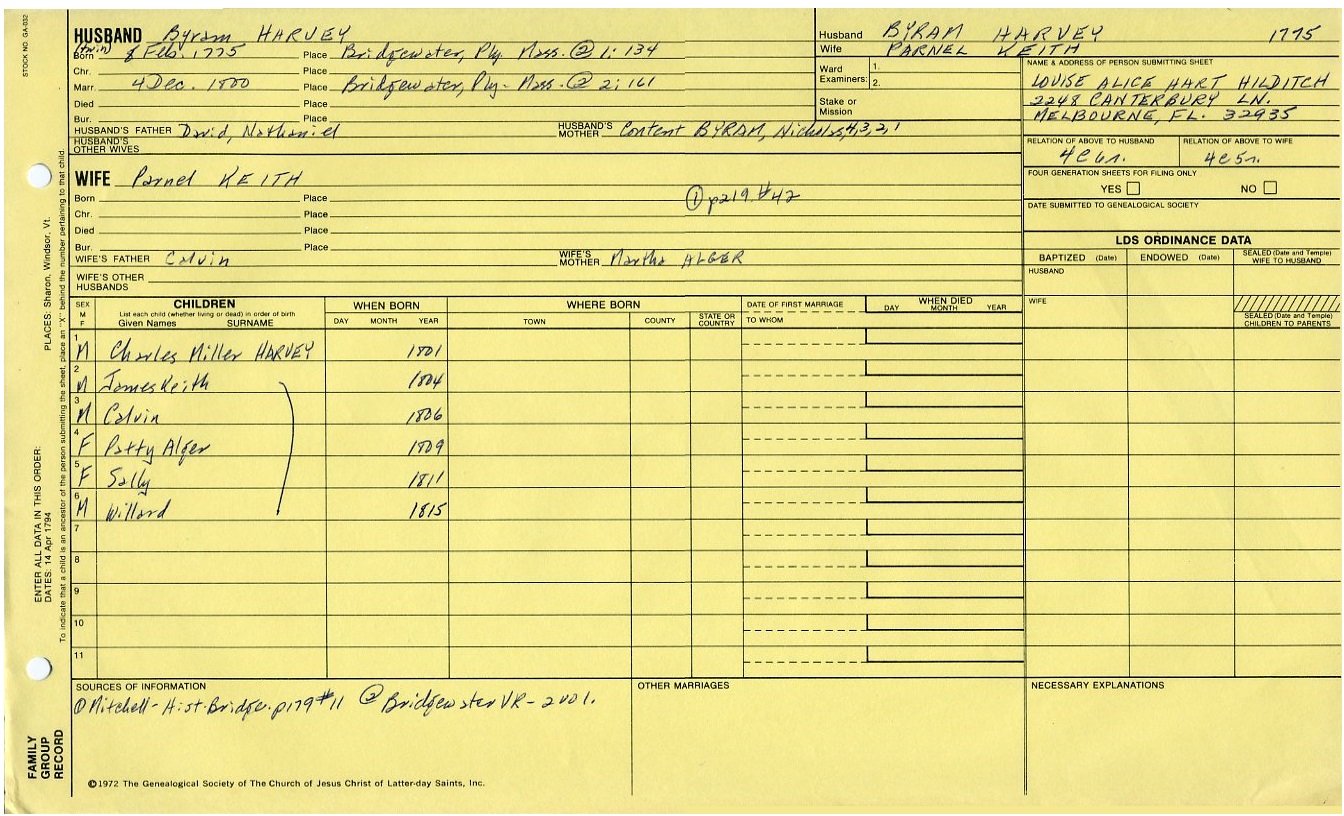 STOCK NO. GA-032
HUSBAND Byram HARVEY
(twin)
Born 8 Feb. 1775 Place Bridgewater, Ply. Mass. ② 1: 134
Chr. Place
Marr. 4 Dec. 1800 Place Bridgewater, Ply. Mass. ② 2; 161
Died Place
Bur. Place
HUSBAND'S FATHER David, Nathaniel HUSBAND'S MOTHER Content BYRAM, Nicholas, 4, 3, 2, 1
HUSBAND'S OTHER WIVES
Husband BYRAM HARVEY 1775
Wife PARNEL KEITH
Ward Examiners: 1.
2.
Stake or Mission
NAME & ADDRESS OF PERSON SUBMITTING SHEET
LOUISE ALICE HART HILDITCH
2248 CANTERBURY LN.
MELBOURNE, FL. 32935
RELATION OF ABOVE TO HUSBAND RELATION OF ABOVE TO WIFE
4C6r. 4C5r.
FOUR GENERATION SHEETS FOR FILING ONLY
YES NO
DATE SUBMITTED TO GENEALOGICAL SOCIETY
WIFE Parnel KEITH
Born Place ① p219 #42
Chr. Place
Died Place
Bur. Place
WIFE'S FATHER Calvin WIFE'S MOTHER Martha ALGER
WIFE'S OTHER HUSBANDS
LDS ORDINANCE DATA
BAPTIZED (Date) ENDOWED (Date) SEALED (Date and Temple) WIFE TO HUSBAND
HUSBAND
WIFE
SEALED (Date and Temple) CHILDREN TO PARENTS
SEX M F
CHILDREN
List each child (whether living or dead) in order of birth
Given Names SURNAME
WHEN BORN
DAY MONTH YEAR
WHERE BORN
TOWN COUNTY STATE OR COUNTRY
DATE OF FIRST MARRIAGE
TO WHOM
WHEN DIED
DAY MONTH YEAR
1 M Charles Miller HARVEY 1801
2 M James Keith 1804
3 M Calvin 1806
4 F Patty Alger 1809
5 F Sally 1811
6 M Willard 1815
7
8
9
10
11
SOURCES OF INFORMATION
① Mitchell - Hist. Bridge. p179 #11 ② Bridgewater VR - 2 vol.
OTHER MARRIAGES
NECESSARY EXPLANATIONS
©1972 The Genealogical Society of The Church of Jesus Christ of Latter-day Saints, Inc.
FAMILY
GROUP
RECORD
ENTER ALL DATA IN THIS ORDER:
DATES: 14 Apr 1794 PLACES: Sharon, Windsor, Vt.
To indicate that a child is an ancestor of the person submitting the sheet, place an "X" behind the number pertaining to that child.